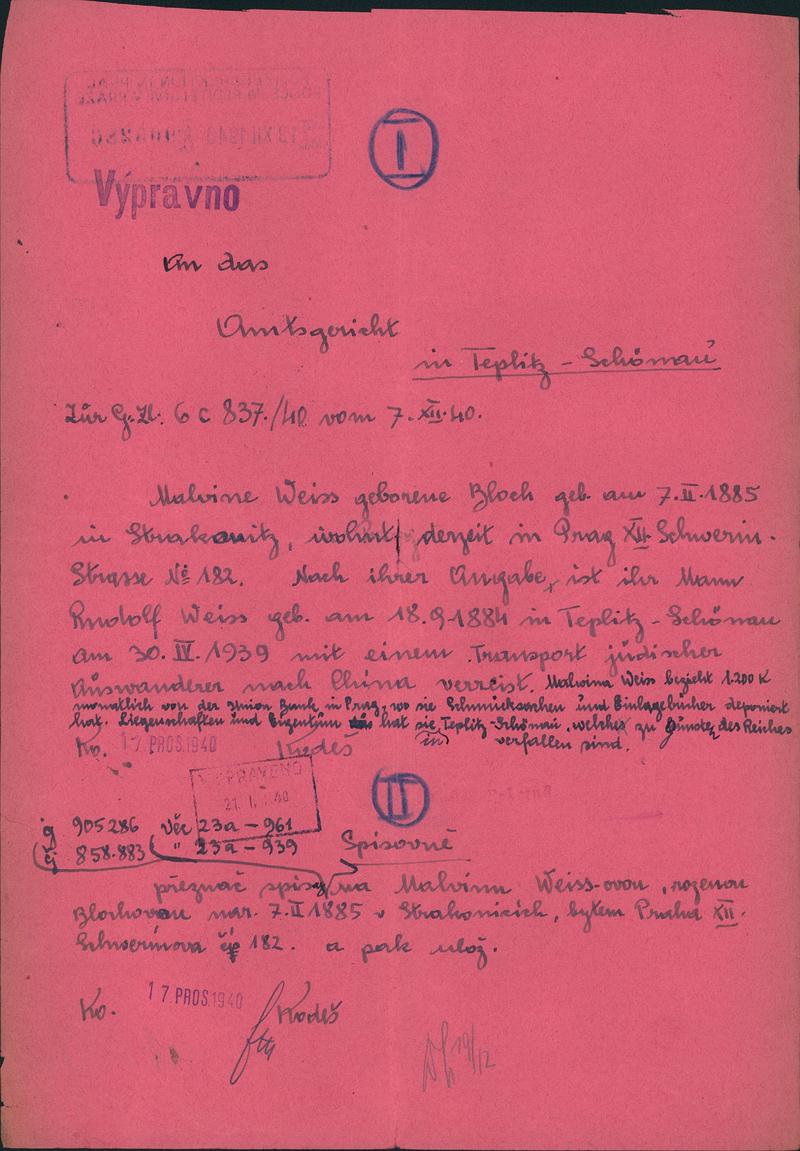 I
Výpravno
An das
Amtsgericht
in Teplitz-Schönau
Zur G.Zl. 6 C 837./40 vom 7.XII.40.
Malvine Weiss geborene Bloch geb. am 7.II.1885
in Strakonitz, wohnt derzeit in Prag XII. Schwerin-
Strasse № 182. Nach ihrer Angabe, ist ihr Mann
Rudolf Weiss geb. am 18.9.1884 in Teplitz-Schönau
am 30.IV.1939 mit einem Transport jüdischer
Auswanderer nach China verreist. Malwina Weiss bezieht 1.200 K
monatlich von der Union Bank in Prag, wo sie Schmucksachen und Einlagebücher deponiert
hat. Liegenschaften und Eigentum hat sie in Teplitz-Schönau, welches zu Gunsten des Reiches
verfallen sind.
Ko. 17 PROS. 1940 Kodeš
VYPRAVENO
II
g 905286 věc 23a - 961
čj 858.883 " 23a - 939
Spisovně
přeznač spisy na Malvinu Weiss-ovou, rozenou
Blochovou nar. 7.II 1885 v Strakonicích, bytem Praha XII.
Schwerinova čp 182. a pak ulož.
Ko. 17. PROS. 1940 Kodeš
19/12